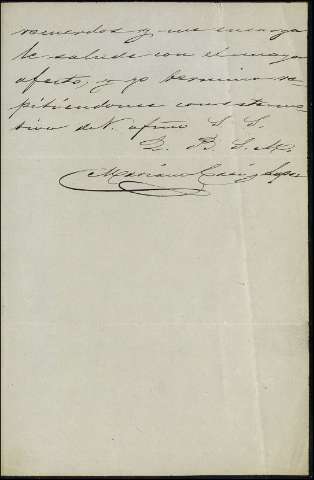 recuerdos y me encarga
le salude con el mayor
afecto, y yo termino re
pitiéndome con este mo
tivo de V. afmo S. S.
Q. B. S. M.
Mariano Lopez